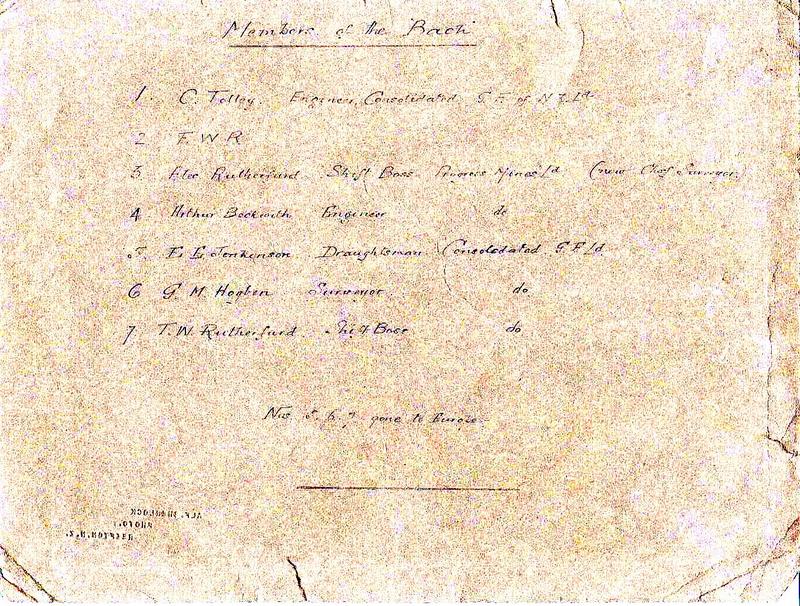 Members of the Bach
1. C. Tolley. Engineer, Consolidated G.F. of N.Z. Ld
2 F. W. R
3 Alec Rutherfurd Shift Boss Progress Mines Ld (now Chief Surveyor)
4 Arthur Beckwith Engineer do
5. F. E. Jenkinson Draughtsman Consolidated G.F. Ld
6 G. M. Hogben Surveyor do
7 T. W. Rutherfurd Shift Boss do
Nos 5. 6. 7 gone to Europe
PHOTO.
REEFTON. N.Z.